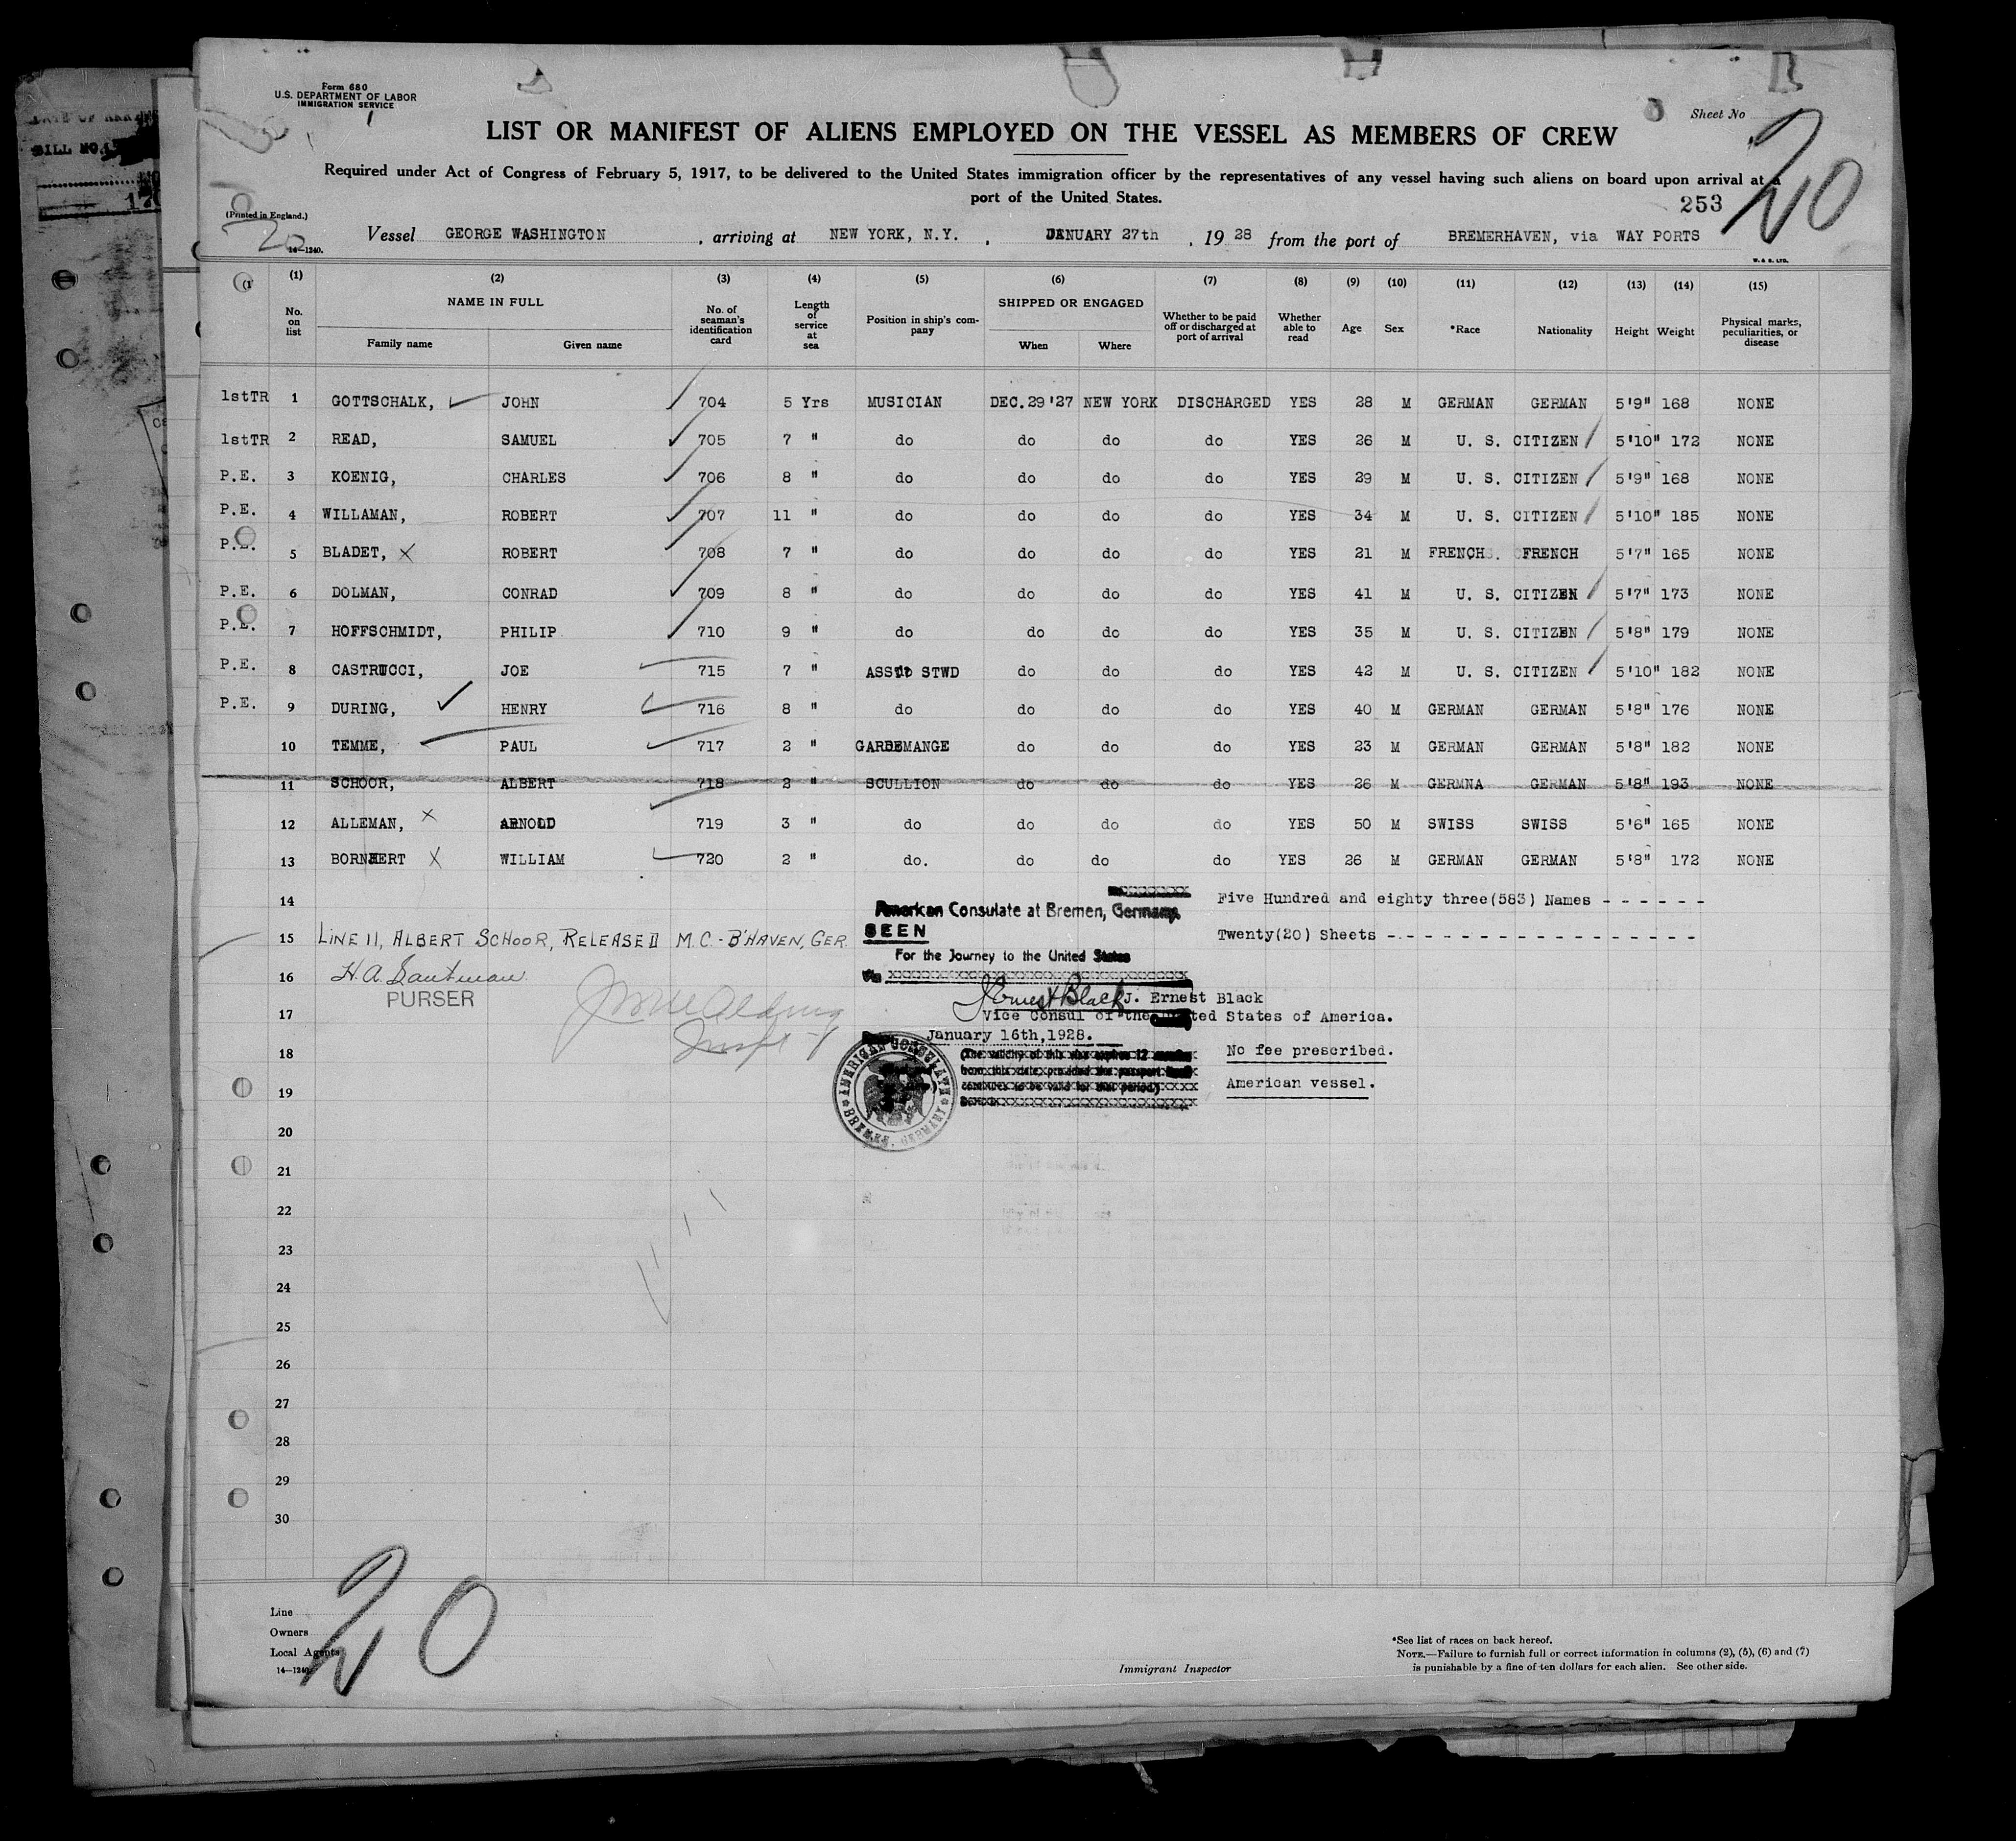 Form 680
U.S. DEPARTMENT OF LABOR
IMMIGRATION SERVICE
Sheet No
20
LIST OR MANIFEST OF ALIENS EMPLOYED ON THE VESSEL AS MEMBERS OF CREW
Required under Act of Congress of February 5, 1917, to be delivered to the United States immigration officer by the representatives of any vessel having such aliens on board upon arrival at a
port of the United States.
253
(Printed in England.)
20
14—1240.
Vessel GEORGE WASHINGTON , arriving at NEW YORK, N.Y. , JANUARY 27th , 19 28 from the port of BREMERHAVEN, via WAY PORTS
W. & S. LTD.
(1) (2) (3) (4) (5) (6) (7) (8) (9) (10) (11) (12) (13) (14) (15)
No. on list NAME IN FULL Family name Given name No. of seaman's identification card Length of service at sea Position in ship's company SHIPPED OR ENGAGED When Where Whether to be paid off or discharged at port of arrival Whether able to read Age Sex *Race Nationality Height Weight Physical marks, peculiarities, or disease
1stTR 1 GOTTSCHALK, JOHN 704 5 Yrs MUSICIAN DEC.29'27 NEW YORK DISCHARGED YES 28 M GERMAN GERMAN 5'9" 168 NONE
1stTR 2 READ, SAMUEL 705 7 " do do do do YES 26 M U. S. CITIZEN 5'10" 172 NONE
P.E. 3 KOENIG, CHARLES 706 8 " do do do do YES 29 M U. S. CITIZEN 5'9" 168 NONE
P.E. 4 WILLAMAN, ROBERT 707 11 " do do do do YES 34 M U. S. CITIZEN 5'10" 185 NONE
P.E. 5 BLADET, X ROBERT 708 7 " do do do do YES 21 M FRENCH FRENCH 5'7" 165 NONE
P.E. 6 DOLMAN, CONRAD 709 8 " do do do do YES 41 M U. S. CITIZEN 5'7" 173 NONE
P.E. 7 HOFFSCHMIDT, PHILIP 710 9 " do do do do YES 35 M U. S. CITIZEN 5'8" 179 NONE
P.E. 8 CASTRUCCI, JOE 715 7 " ASST STWD do do do YES 42 M U. S. CITIZEN 5'10" 182 NONE
P.E. 9 DURING, HENRY 716 8 " do do do do YES 40 M GERMAN GERMAN 5'8" 176 NONE
10 TEMME, PAUL 717 2 " GARDEMANGE do do do YES 23 M GERMAN GERMAN 5'8" 182 NONE
11 SCHOOR, ALBERT 718 2 " SCULLION do do do YES 26 M GERMNA GERMAN 5'8" 193 NONE
12 ALLEMAN, X ARNOLD 719 3 " do do do do YES 50 M SWISS SWISS 5'6" 165 NONE
13 BORNHERT X WILLIAM 720 2 " do. do do do YES 26 M GERMAN GERMAN 5'8" 172 NONE
14 Five Hundred and eighty three(583) Names - - - - - -
American Consulate at Bremen, Germany,
SEEN
Twenty(20) Sheets - - - - - - - - - - - - - - - - - -
15 LINE 11, ALBERT SCHOOR, RELEASED M.C. - B'HAVEN, GER.
For the Journey to the United States
16 H.A.
Via xxxxxxxxxxxxxxxxxxxxxxxxxxxxxxxx
PURSER
J Ernest Black J. Ernest Black
17 Vice Consul of the United States of America.
January 16th,1928.
18 No fee prescribed.
(The validity of this visa expires 12 months
from this date, provided the passport
continues to be valid for that period)
19 American vessel.
AMERICAN CONSULATE
BREMEN, GERMANY
20
21
22
23
24
25
26
27
28
29
30
20
Line
Owners
Local Agents
14—1240
Immigrant Inspector
*See list of races on back hereof.
NOTE.—Failure to furnish full or correct information in columns (2), (5), (6) and (7)
is punishable by a fine of ten dollars for each alien. See other side.